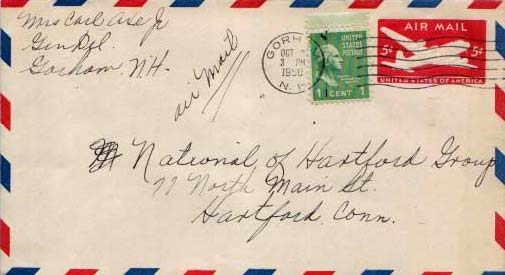 Mrs Carl Ase Jr
Gen Del
Gorham, N.H.
air mail
GORHAM
OCT
3 PM
1950
N.H.
UNITED
STATES
POSTAGE
1 CENT 1
AIR MAIL
5¢ 5¢
UNITED STATES OF AMERICA
National of Hartford Group
77 North Main St.
Hartford Conn.